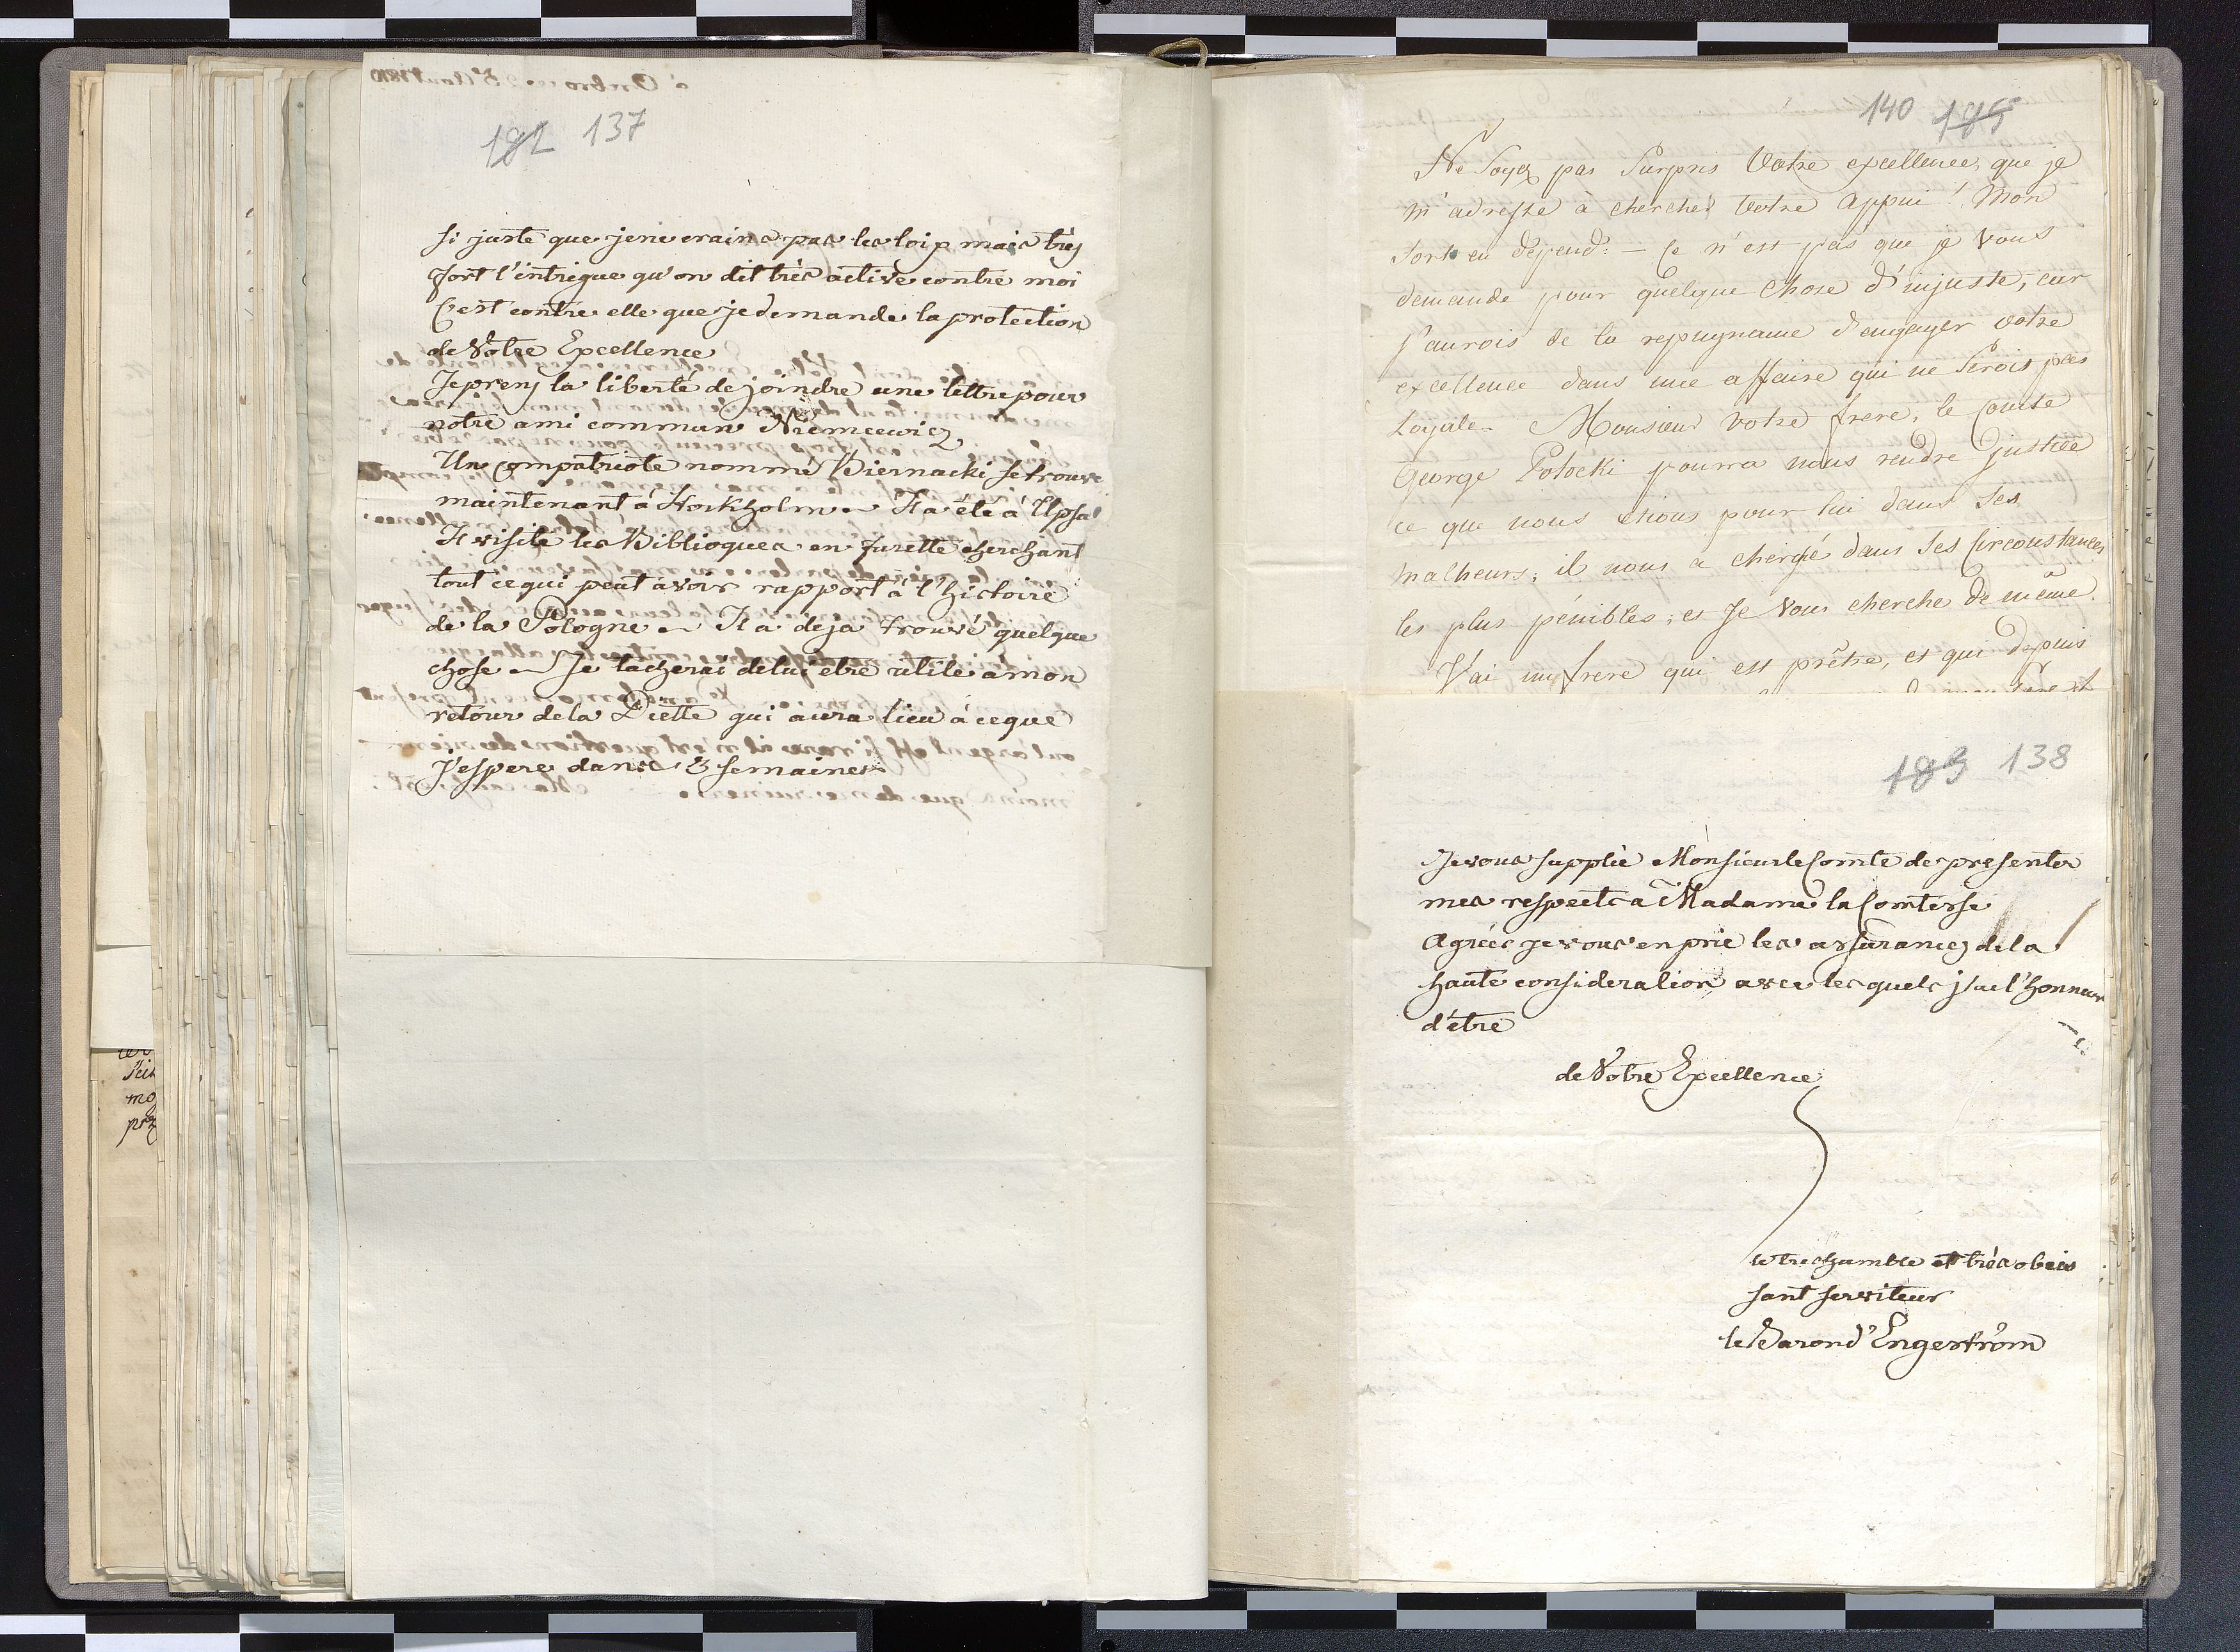 182 137
si juste que je ne crains pas les loix mais très
fort l'intrigue qu'on dit très active contre moi
C'est contre elle que je demande la protection
de Votre Excellence
Je prens la liberté de joindre une lettre pour
notre ami commun Niemcewicz
Un compatriote nommé Biernacki se trouve
maintenant à Stockholm Il a été à Upsal
Il visite les Biblioques en furette cherchant
tout ce qui peut avoir rapport à l'histoire
de la Pologne Il a deja trouvé quelque
chose Je tacherai de lui etre utile à mon
retour de la Diette qui aura lieu à ce que
j'espere dans 3 semaines
140 185
Ne Soyez pas Surpris Votre excellence, que je
m'adresse à chercher Votre appui! Mon
Sort en dépend: — Ce n'est pas que je vous
demande pour quelque Chose d'injuste, car
j'aurois de la repugnance d'engager votre
excellence dans une affaire qui ne Serois pas
Loyale. Monsieur Votre frere, le Comte
George Potocki pourra nous rendre justice
ce que nous etions pour lui dans Ses
malheurs; il nous a chergé dans Ses Circonstances
les plus pénibles; et Je vous cherche de même.
J'ai un frere qui est prêtre, et qui depuis
183 138
Je vous supplie Monsieur le Comte de presenter
mes respects a Madame la Comtesse
Agréés je vous en prie les assurances de la
haute consideration avec les quels j'ai l'honneur
d'être
de Votre Excellence
le tres humble et très obeis
sant serviteur
le Baron d'Engeström